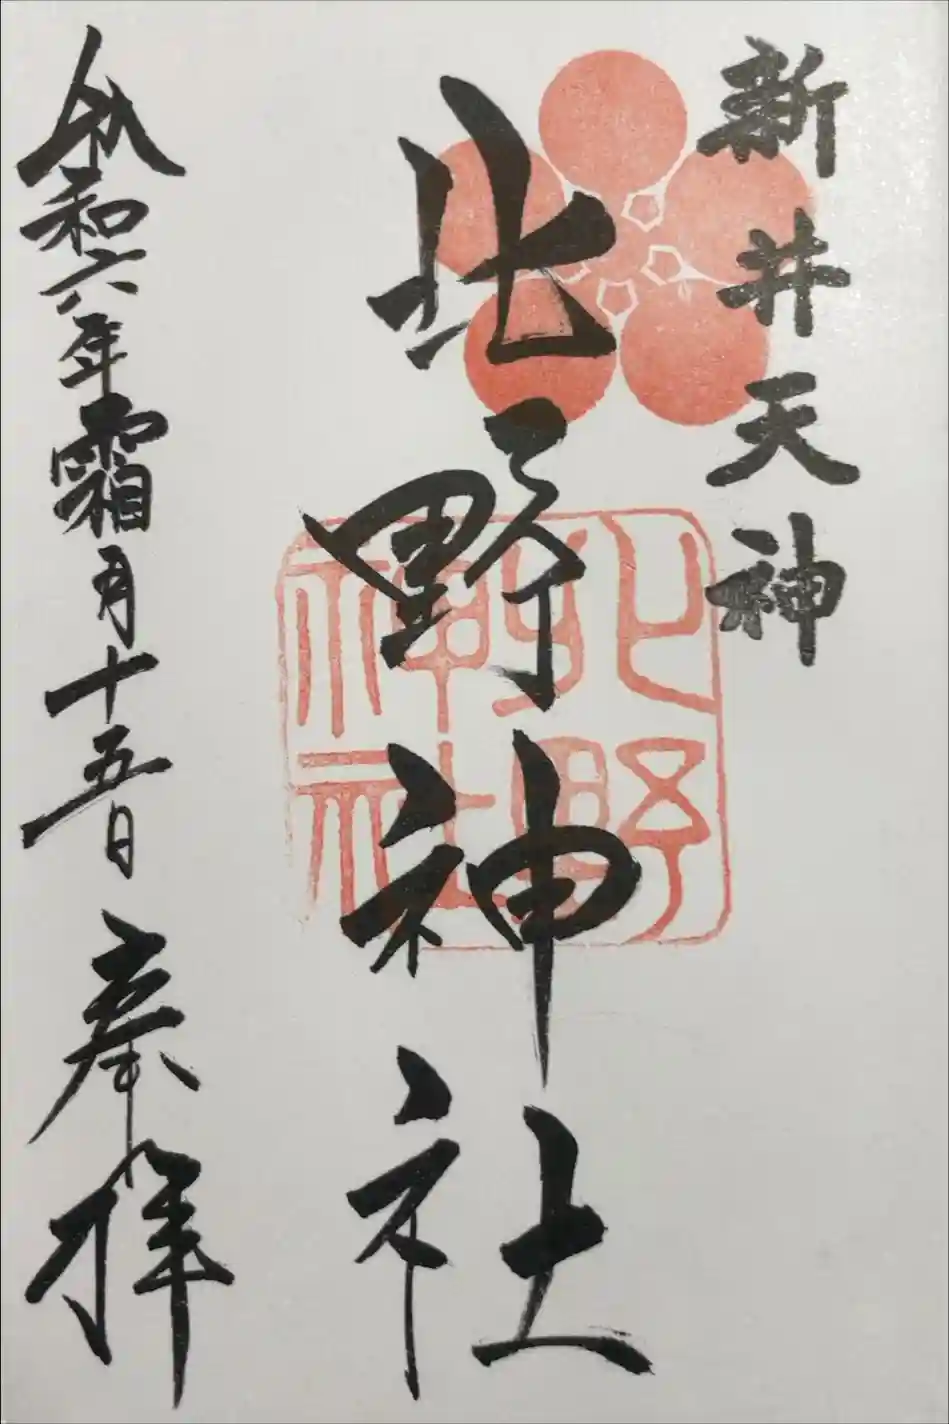 新井天神
北野神社
北野
神社
令和六年霜月十五日
奉拝